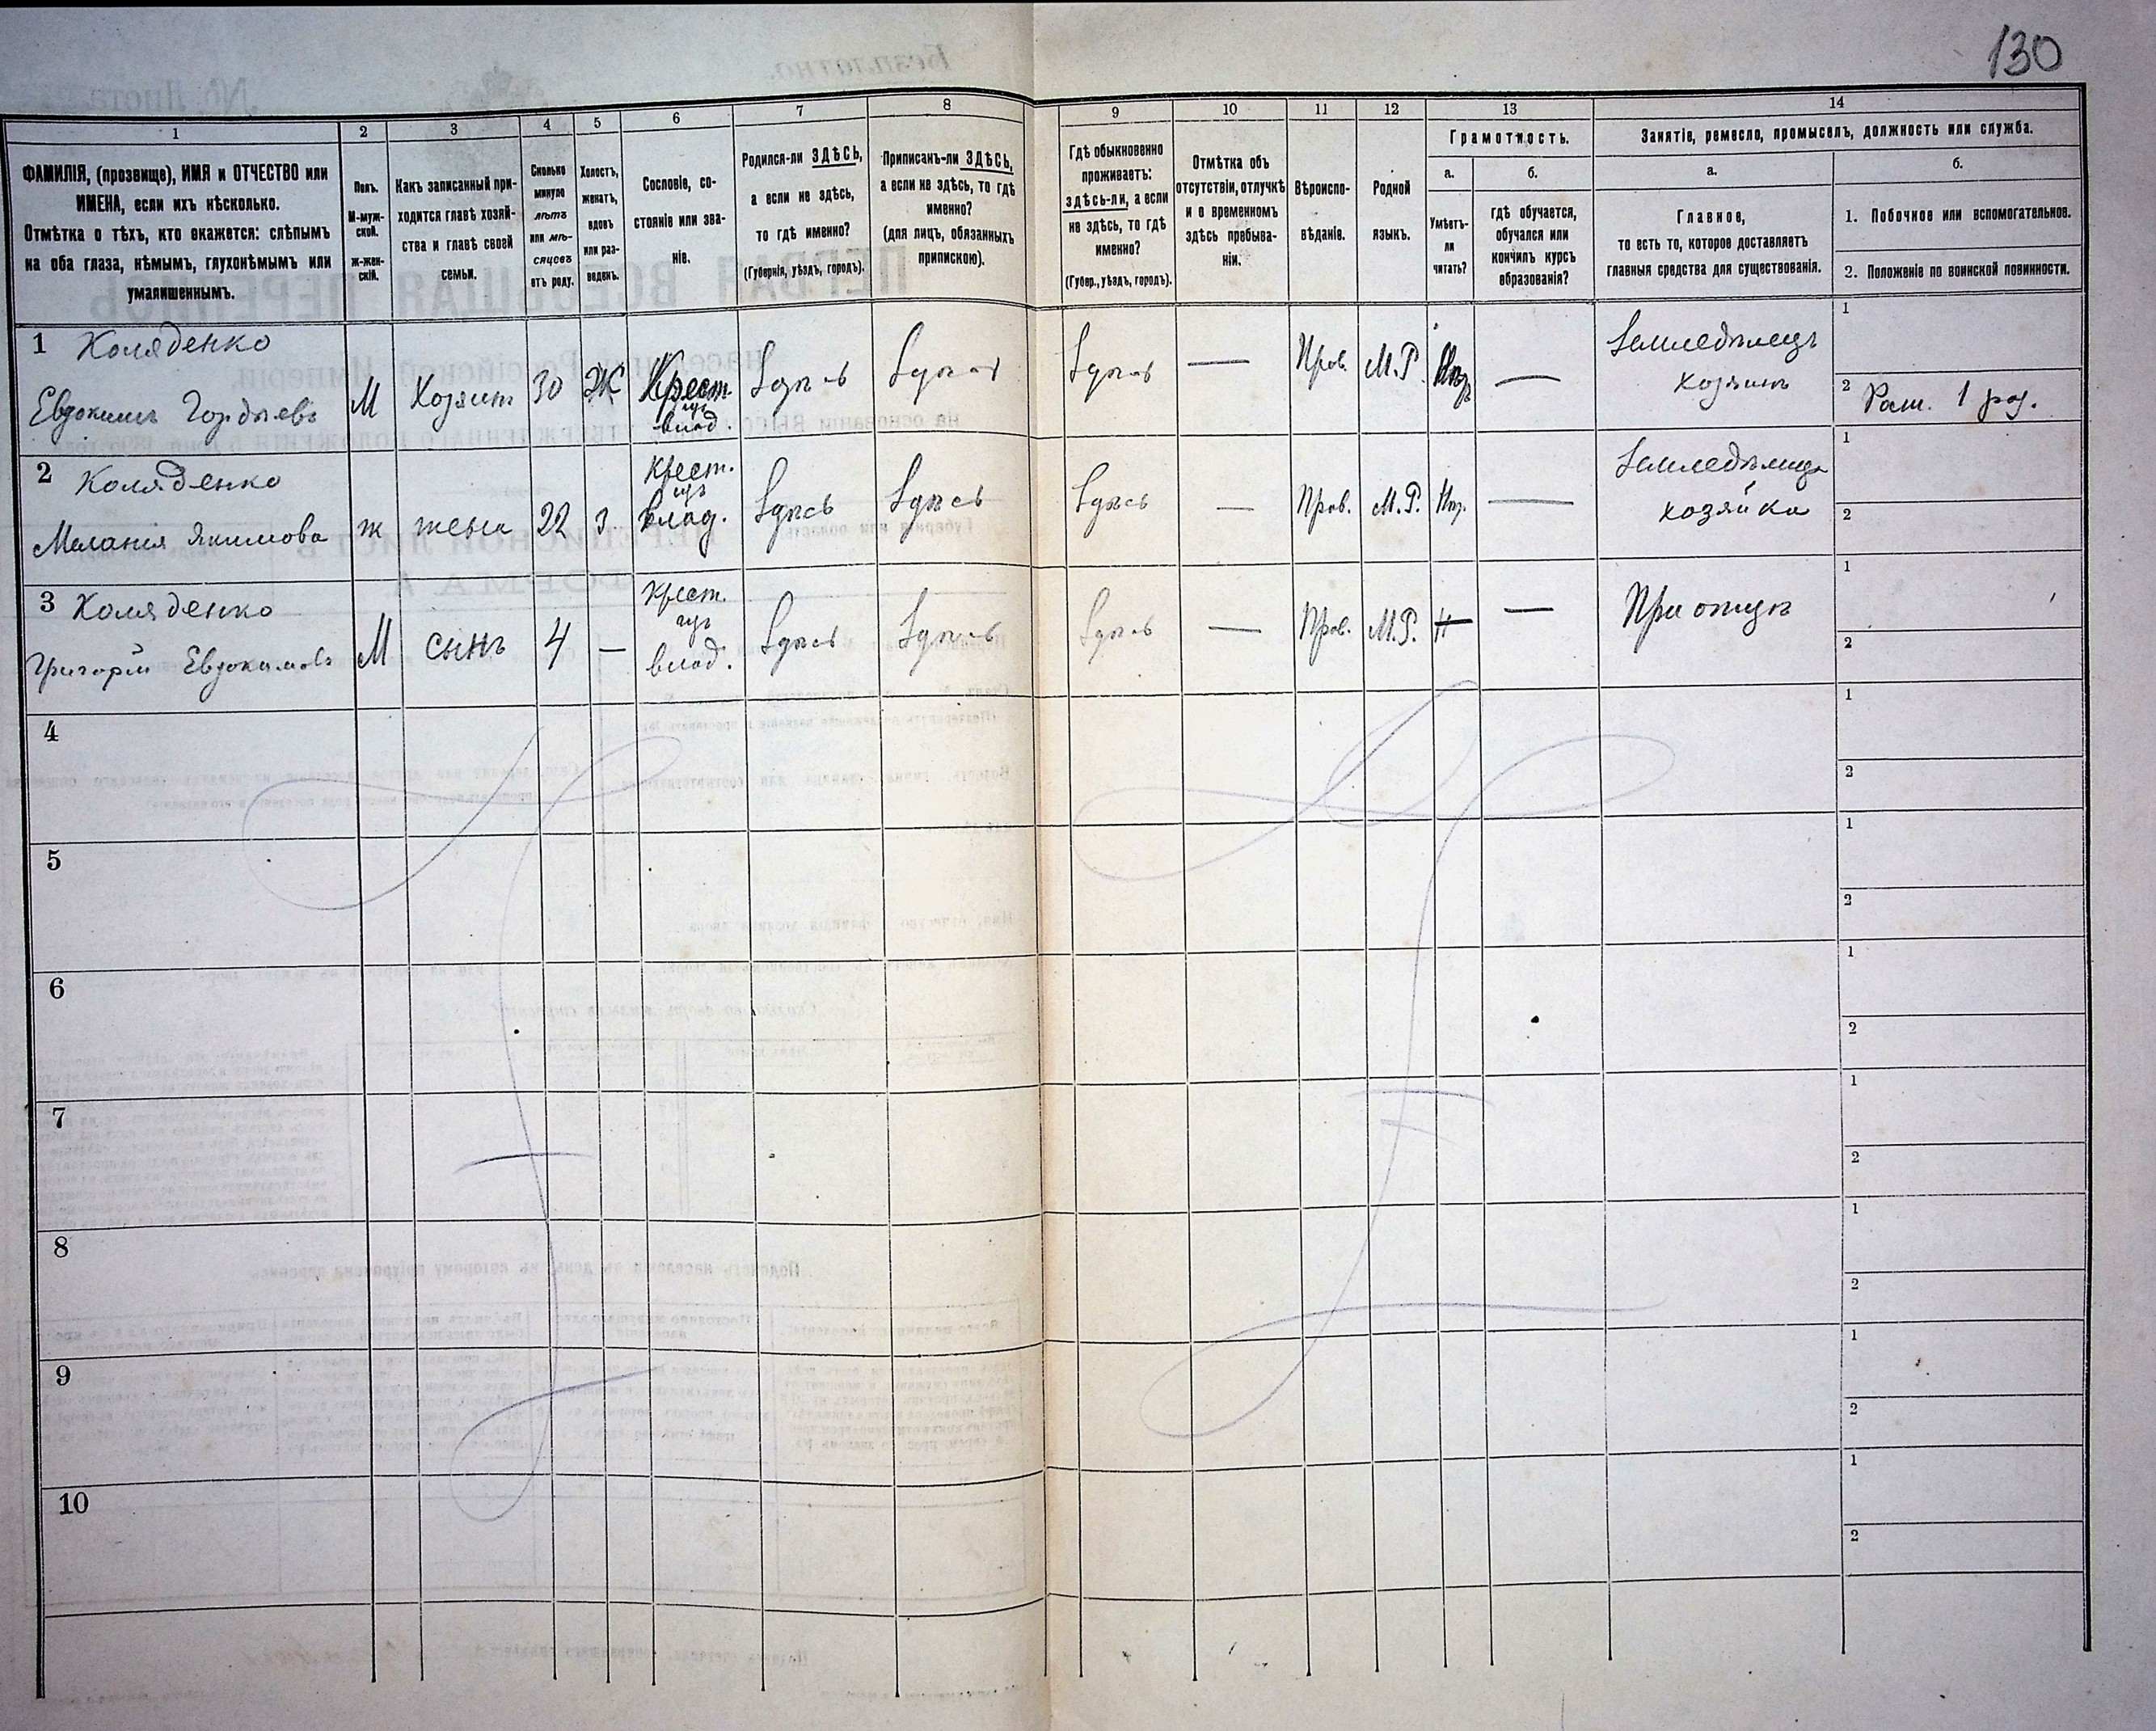 130
1
2
3
4
5
6
7
8
9
10
11
12
13
14
ФАМИЛІЯ, (прозвище), ИМЯ и ОТЧЕСТВО или
ИМЕНА, если ихъ нѣсколько.
Отмѣтка о тѣхъ, кто окажется: слѣпымъ
на оба глаза, нѣмымъ, глухонѣмымъ или
умалишеннымъ.
Полъ.
М-муж-
ской.
ж-жен-
скій.
Какъ записанный при-
ходится главѣ хозяй-
ства и главѣ своей
семьи.
Сколько
минуло
лѣтъ
или мѣ-
сяцевъ
отъ роду.
Холостъ,
женатъ,
вдовъ
или раз-
веденъ.
Сословіе, со-
стояніе или зва-
ніе.
Родился-ли ЗДѢСЬ,
а если не здѣсь,
то гдѣ именно?
(Губернія, уѣздъ, городъ).
Приписанъ-ли ЗДѢСЬ,
а если не здѣсь, то гдѣ
именно?
(для лицъ, обязанныхъ
припискою).
Гдѣ обыкновенно
проживаетъ:
здѣсь-ли, а если
не здѣсь, то гдѣ
именно?
(Губер., уѣздъ, городъ).
Отмѣтка объ
отсутствіи, отлучкѣ
и о временномъ
здѣсь пребыва-
ніи.
Вѣроиспо-
вѣданіе.
Родной
языкъ.
Грамотность.
а.
Умѣетъ-
ли
читать?
б.
гдѣ обучается,
обучался или
кончилъ курсъ
образованія?
Занятіе, ремесло, промыселъ, должность или служба.
а.
Главное,
то есть то, которое доставляетъ
главныя средства для существованія.
б.
1. Побочное или вспомогательное.
2. Положеніе по воинской повинности.
1 Коляденко
Евдокимъ Гордѣевъ
М
Хозяин
30
Ж
Крест.
изъ
влад.
Здѣсь
Здѣсь
Здѣсь
—
Прав.
М.Р.
—
Земледѣлецъ
хозяинъ
1
2 Рат. 1 раз.
2 Коляденко
Меланія Якимова
ж
жена
22
з.
крест.
изъ
влад.
Здѣсь
Здѣсь
Здѣсь
—
Прав.
М.Р.
—
Земледѣлица
хозяйка
1
2
3 Коляденко
Григорій Евдокимовъ
М
сынъ
4
—
крест.
изъ
влад.
Здѣсь
Здѣсь
Здѣсь
—
Прав.
М.Р.
Н
—
При отцѣ
1
2
4
1
2
5
1
2
6
1
2
7
1
2
8
1
2
9
1
2
10
1
2